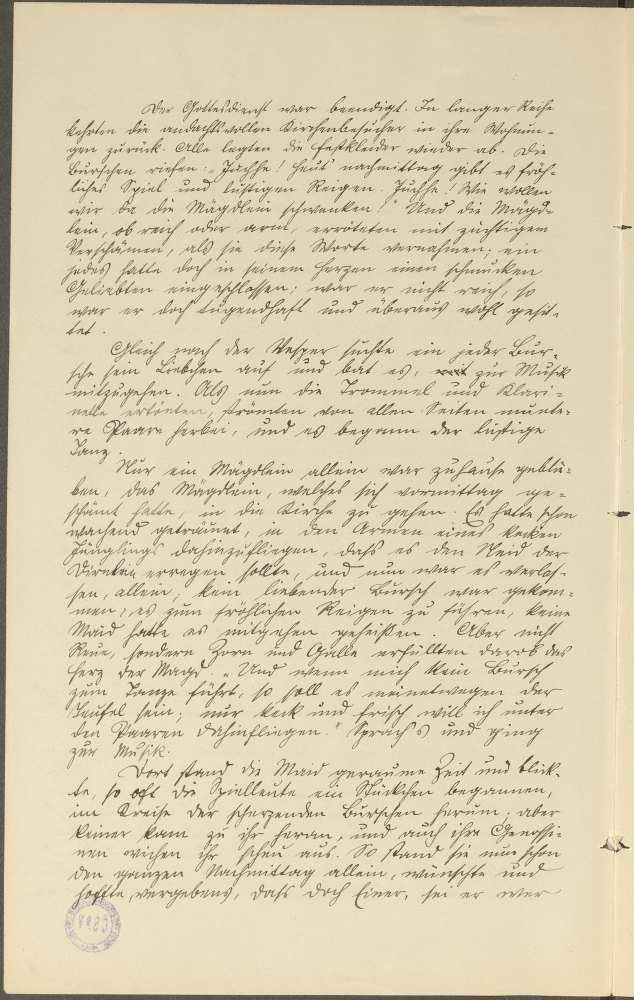 Der Gottesdienst war beendigt. In langer Reihe
kehrten die andachtsvollen Kirchenbesucher in ihre Wohnun-
gen zurück. Alle legten die Festkleider wieder ab. Die
Burschen riefen: „Juchhe! Heut' nachmittag gibt es fröh-
liches Spiel und lustigen Reigen. Juchhe! Wie wollen
wir da die Mägdlein schwenken!" Und die Mägd-
lein, ob reich oder arm, erröteten mit züchtigem
Verschämen, als sie diese Worte vernahmen; ein
jedes hatte doch in seinem Herzen einen schmucken
Geliebten eingeschlossen; war er nicht reich, so
war er doch tugendhaft und überaus wohl gesit-
tet.
Gleich nach der Vesper suchte ein jeder Bur-
sche sein Liebchen auf und bat es, zur Musik
mitzugehen. Als nun die Trommel und Klari-
nette ertönten, strömten von allen Seiten munte-
re Paare herbei, und es begann der lustige
Tanz.
Nur ein Mägdlein allein war zuhause geblie-
ben, das Mägdlein, welches sich vormittag ge-
schämt hatte, in die Kirche zu gehen. Es hatte schon
wachend geträumt, in den Armen eines kecken
Jünglings dahinzufliegen, dass es den Neid der
Dirnen erregen sollte, und nun war es verlas-
sen, allein; kein liebender Bursch war gekom-
men, es zum fröhlichen Reigen zu führen, keine
Maid hatte es mitgehen geheißen. Aber nicht
Reue, sondern Zorn und Galle erfüllten darob das
Herz der Magd. „Und wenn mich kein Bursch
zum Tanze führt, so soll es meinetwegen der
Teufel sein; nur keck und frisch will ich unter
den Paaren dahinfliegen." Sprach's und ging
zur Musik.
Dort stand die Maid geraume Zeit und blick-
te, so oft die Spielleute ein Stückchen begannen,
im Kreise der scherzenden Burschen herum; aber
keiner kam zu ihr heran, und auch ihre Genossi-
nen wichen ihr scheu aus. So stand sie nun schon
den ganzen Nachmittag allein, wünschte und
hoffte vergebens, dass doch Einer, sei er wer